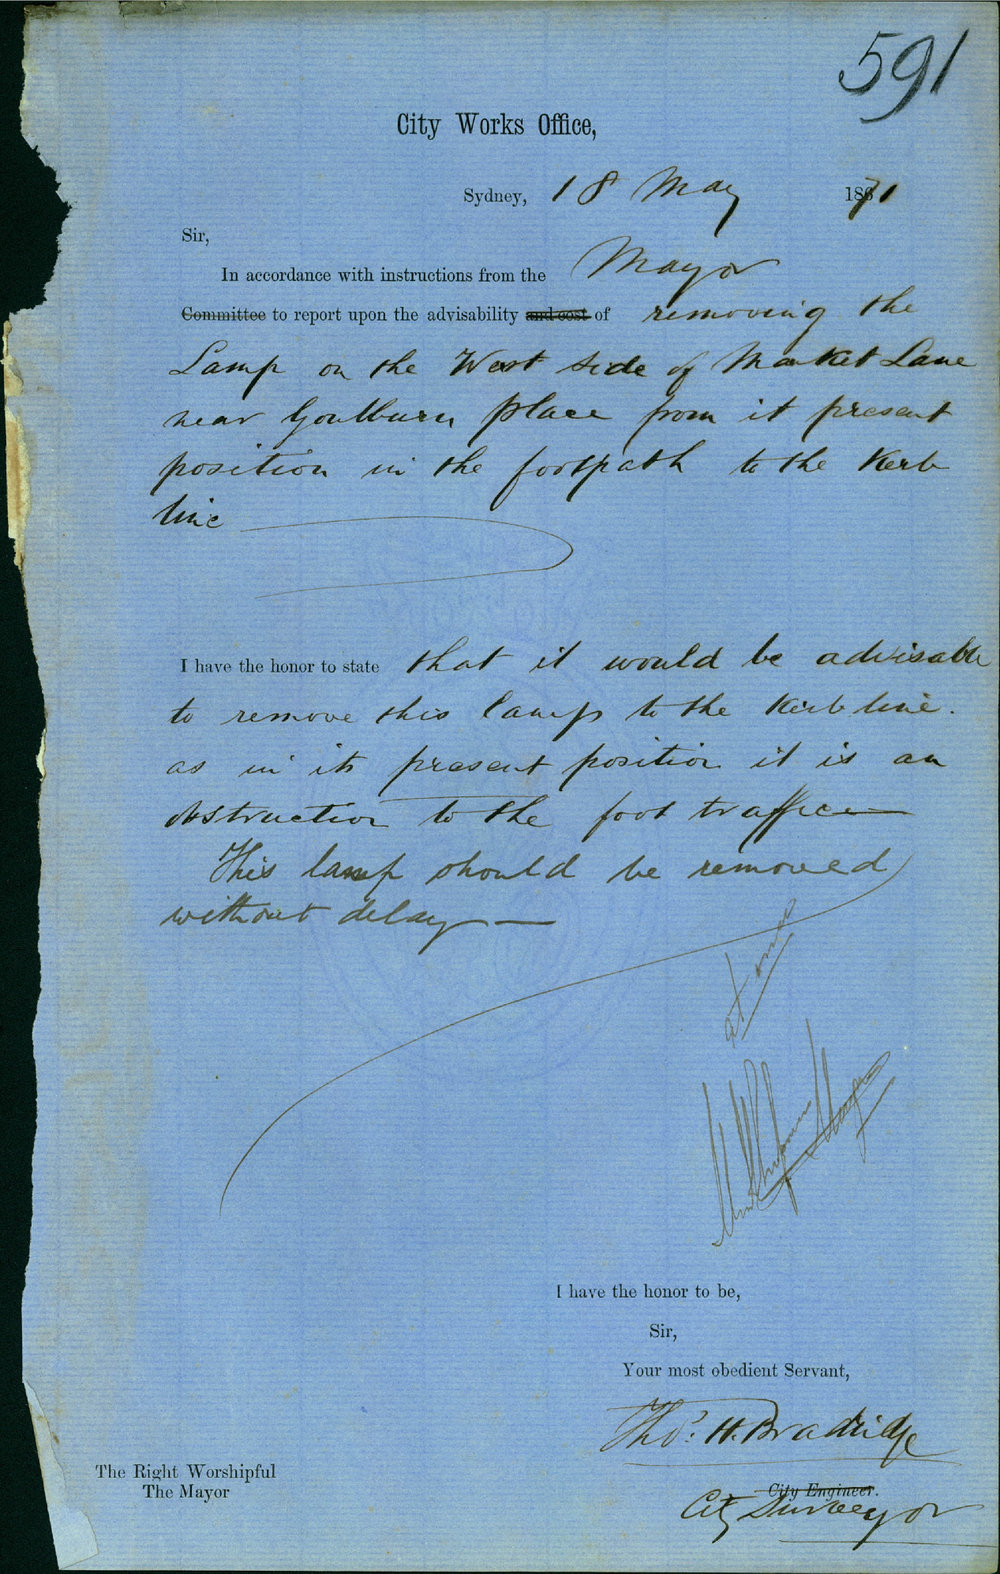 591
City Works Office,
Sydney, 18 May 1871
Sir,
In accordance with instructions from the Mayor
Committee to report upon the advisability and cost of removing the
Lamp on the West side of Market Lane
near Goulburn place from it present
position in the footpath to the Kerb
line
I have the honor to state that it would be advisable
to remove this lamp to the Kerb line.
as in its present position it is an
obstruction to the foot traffice
This lamp should be removed
without delay
Mayor
I have the honor to be,
Sir,
Your most obedient Servant,
Thos. H. Bradridge
City Engineer.
City Surveyor
The Right Worshipful
The Mayor